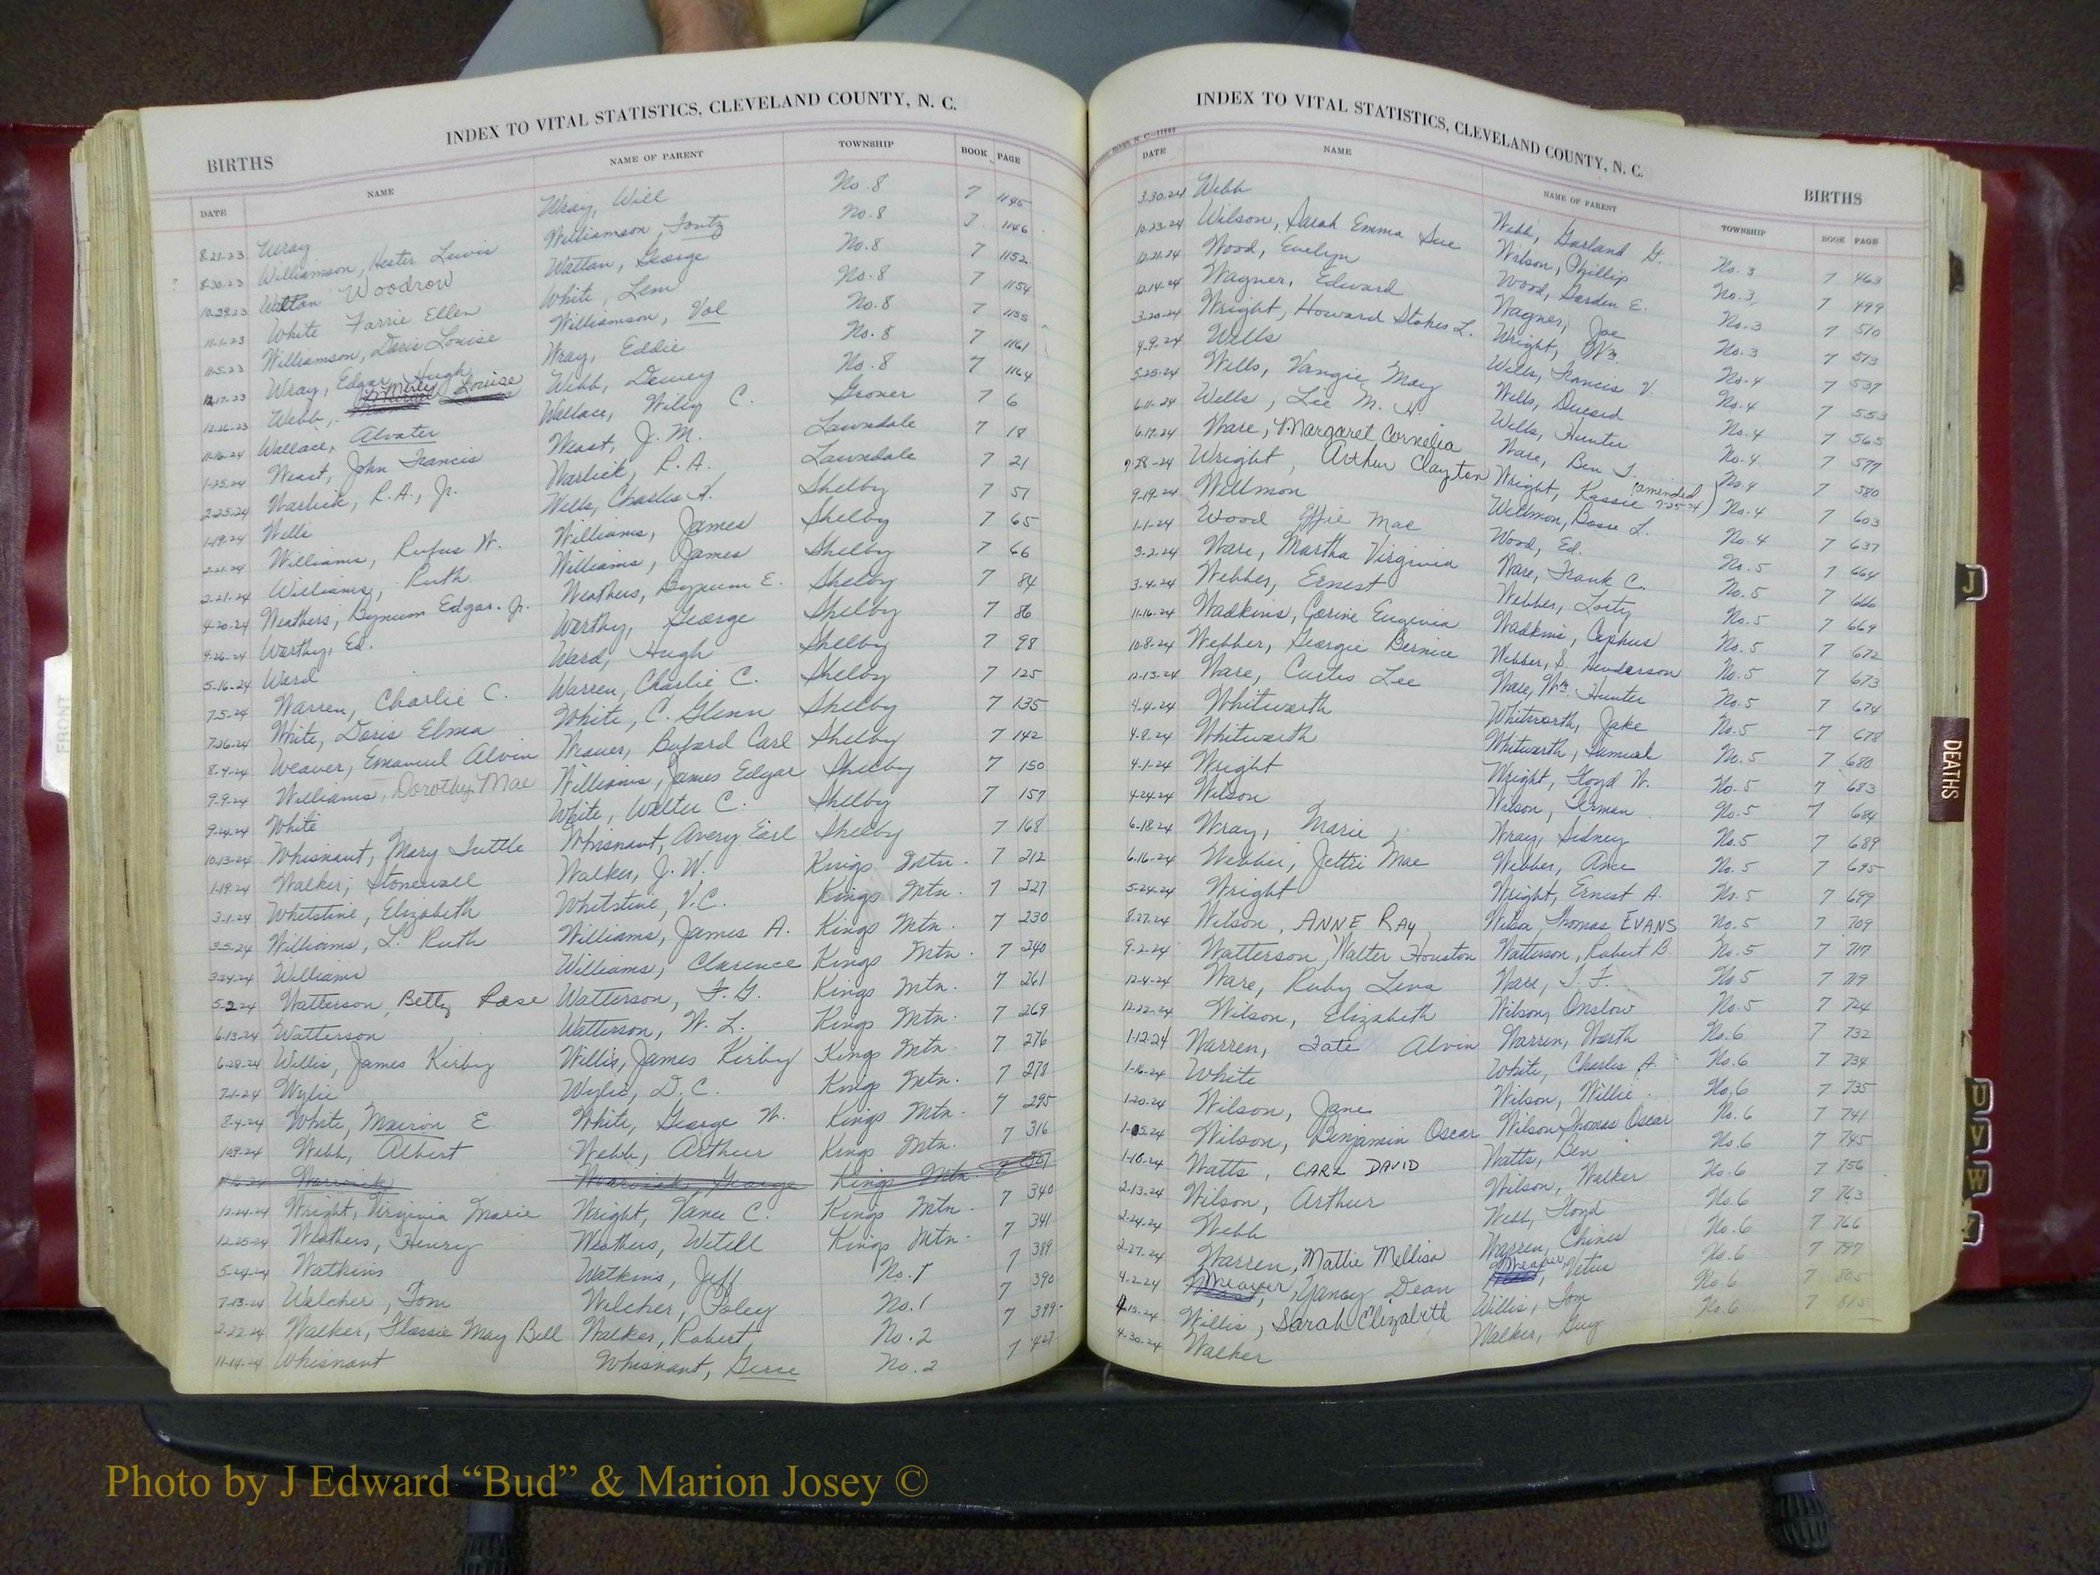 INDEX TO VITAL STATISTICS, CLEVELAND COUNTY, N. C.
BIRTHS
DATE NAME NAME OF PARENT TOWNSHIP BOOK PAGE
8-21-23 Wray Wray, Will No. 8 7 1145
8-30-23 Williamson, Hester Lewis Williamson, Fontz No. 8 7 1146
10-29-23 Watton Woodrow Wattan, George No. 8 7 1152
11-1-23 White Farrie Ellen White, Lem No. 8 7 1154
11-5-23 Williamson, Doris Louise Williamson, Val No. 8 7 1155
12-17-23 Wray, Edgar Hugh Wray, Eddie No. 8 7 1161
12-26-23 Webb, Louise Webb, Dewey No. 8 7 1164
11-16-24 Wallace, Alvater Wallace, Wiley C. Grover 7 6
1-25-24 Weast, John Francis Weast, J. M. Lawndale 7 18
2-25-24 Warlick, R. A., Jr. Warlick, R. A. Lawndale 7 21
1-19-24 Wells Wells, Charles H. Shelby 7 57
2-21-24 Williams, Rufus W. Williams, James Shelby 7 65
2-21-24 Williams, Ruth Williams, James Shelby 7 66
4-20-24 Weathers, Bynum Edgar. Jr. Weathers, Bynum E. Shelby 7 84
4-26-24 Worthy, Ed. Worthy, George Shelby 7 86
5-16-24 Ward Ward, Hugh Shelby 7 98
7-5-24 Warren, Charlie C. Warren, Charlie C. Shelby 7 125
7-26-24 White, Doris Elmea White, C. Glenn Shelby 7 135
8-4-24 Weaver, Emanuel Alvin Weaver, Buford Carl Shelby 7 142
9-9-24 Williams, Dorothy Mae Williams, James Edgar Shelby 7 150
9-24-24 White White, Walter C. Shelby 7 157
10-13-24 Whisnant, Mary Tuttle Whisnant, Avery Earl Shelby 7 168
1-19-24 Walker, Stonewall Walker, J. W. Kings Mtn. 7 212
3-1-24 Whetstine, Elizabeth Whetstine, V. C. Kings Mtn. 7 227
3-5-24 Williams, L. Ruth Williams, James A. Kings Mtn. 7 230
3-24-24 Williams Williams, Clarence Kings Mtn. 7 240
5-2-24 Watterson, Betty Rose Watterson, F. G. Kings Mtn. 7 261
6-13-24 Watterson Watterson, W. L. Kings Mtn. 7 269
6-28-24 Willis, James Kirby Willis, James Kirby Kings Mtn. 7 276
7-1-24 Wylie Wylie, D. C. Kings Mtn. 7 278
8-4-24 White, Mairon E White, George W. Kings Mtn. 7 295
10-9-24 Webb, Albert Webb, Arthur Kings Mtn. 7 316
11-16-24 Warwick Warwick, George Kings Mtn.
12-24-24 Wright, Virginia Marie Wright, Vance C. Kings Mtn. 7 340
12-25-24 Weathers, Henry Weathers, Wetell Kings Mtn. 7 341
5-24-24 Watkins Watkins, Jeff No. 1 7 389
7-13-24 Welcher, Tom Welcher, Foley No. 1 7 390
2-22-24 Walker, Flossie May Bell Walker, Robert No. 2 7 399
11-14-24 Whisnant Whisnant, Gesse No. 2 7 427
INDEX TO VITAL STATISTICS, CLEVELAND COUNTY, N. C.
BIRTHS
DATE NAME NAME OF PARENT TOWNSHIP BOOK PAGE
3-30-24 Webb Webb, Garland G. No. 3 7 463
10-23-24 Wilson, Sarah Emma Sue Wilson, Phillip No. 3 7 499
12-21-24 Wood, Evelyn Wood, Garden E. No. 3 7 510
12-14-24 Wagner, Edward Wagner, Joe No. 3 7 513
3-20-24 Wright, Howard Stokes L. Wright, Wm. No. 4 7 537
4-9-24 Wells Wells, Francis V. No. 4 7 553
5-25-24 Wells, Vangie May Wells, Durard No. 4 7 565
6-11-24 Wells, Lee M. H. Wells, Hunter No. 4 7 577
6-17-24 Ware, Margaret Cornelia Ware, Ben T. No. 4 7 580
7-28-24 Wright, Arthur Clayton Wright, Kassie (amended 7-25-74) No. 4 7 603
9-19-24 Wellmon Wellmon, Bosie L. No. 4 7 637
1-1-24 Wood Effie Mae Wood, Ed. No. 5 7 664
3-2-24 Ware, Martha Virginia Ware, Frank C. No. 5 7 666
3-4-24 Webber, Ernest Webber, Losty No. 5 7 669
11-16-24 Wadkins, Corine Euginia Wadkins, Cephus No. 5 7 672
10-8-24 Webber, Georgie Bernice Webber, S. Henderson No. 5 7 673
12-13-24 Ware, Curtis Lee Ware, Wm. Hunter No. 5 7 674
4-4-24 Whitworth Whitworth, Jake No. 5 7 678
4-8-24 Whitworth Whitworth, Samuel No. 5 7 680
4-1-24 Wright Wright, Floyd W. No. 5 7 683
4-24-24 Wilson Wilson, Firman No. 5 7 684
6-18-24 Wray, Marie Wray, Sidney No. 5 7 689
6-16-24 Webber, Jettie Mae Webber, Ame No. 5 7 695
5-24-24 Wright Wright, Ernest A. No. 5 7 699
8-27-24 Wilson, ANNE RAY Wilson, Thomas EVANS No. 5 7 709
9-2-24 Watterson, Walter Houston Watterson, Robert B. No. 5 7 717
12-4-24 Ware, Ruby Leva Ware, T. F. No 5 7 719
12-22-24 Wilson, Elizabeth Wilson, Onslow No. 5 7 724
1-12-24 Warren, Tate Alvin Warren, Worth No. 6 7 732
1-16-24 White White, Charles A. No. 6 7 734
1-20-24 Wilson, Jane Wilson, Willie No. 6 7 735
1-25-24 Wilson, Benjamin Oscar Wilson, Thomas Oscar No. 6 7 741
1-10-24 Watts, CARL DAVID Watts, Ben No. 6 7 745
2-13-24 Wilson, Arthur Wilson, Walker No. 6 7 756
2-24-24 Webb Webb, Floyd No. 6 7 763
2-27-24 Warren, Mattie Mellisa Warren, Chines No. 6 7 766
4-2-24 Weaver, Yancy Dean Weaver, Vetus No. 6 7 797
4-15-24 Willis, Sarah Elizabeth Willis, Tom No. 6 7 805
4-30-24 Walker Walker, Guy No. 6 7 815
FRONT
J
DEATHS
U
V
W
Photo by J Edward “Bud” & Marion Josey ©